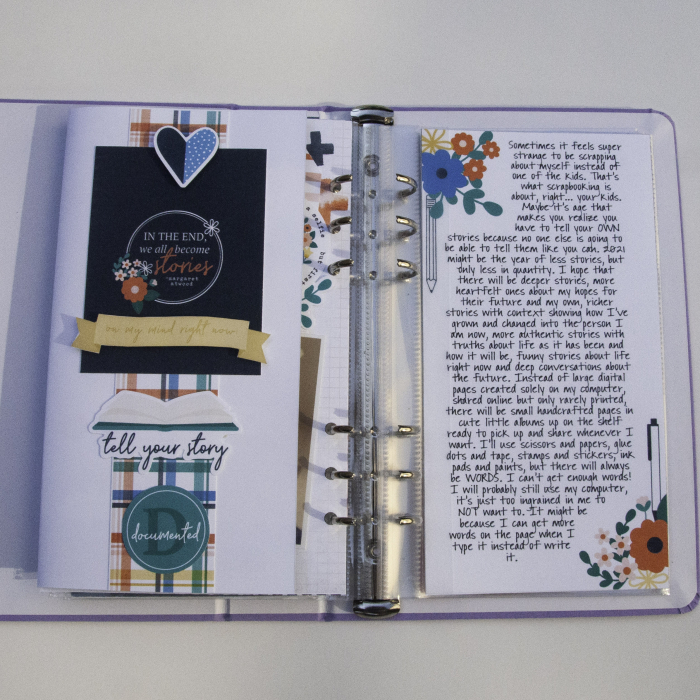 IN THE END,
we all become
stories
-margaret
atwood
on my mind right now
tell your story
D
documented
Sometimes it feels super
strange to be scrapping
about myself instead of
one of the kids. That's
what scrapbooking is
about, right... your kids.
Maybe it's age that
makes you realize you
have to tell your OWN
stories because no one else is going to
be able to tell them like you can. 2021
might be the year of less stories, but
only less in quantity. I hope that
there will be deeper stories, more
heartfelt ones about my hopes for
their future and my own, richer
stories with context showing how I've
grown and changed into the person I
am now, more authentic stories with
truths about life as it has been and
how it will be, funny stories about life
right now and deep conversations about
the future. Instead of large digital
pages created solely on my computer,
shared online but only rarely printed,
there will be small handcrafted pages in
cute little albums up on the shelf
ready to pick up and share whenever I
want. I'll use scissors and papers, glue
dots and tape, stamps and stickers, ink
pads and paints, but there will always
be WORDS. I can't get enough words!
I will probably still use my computer,
it's just too ingrained in me to
NOT want to. It might be
because I can get more
words on the page when I
type it instead of write
it.